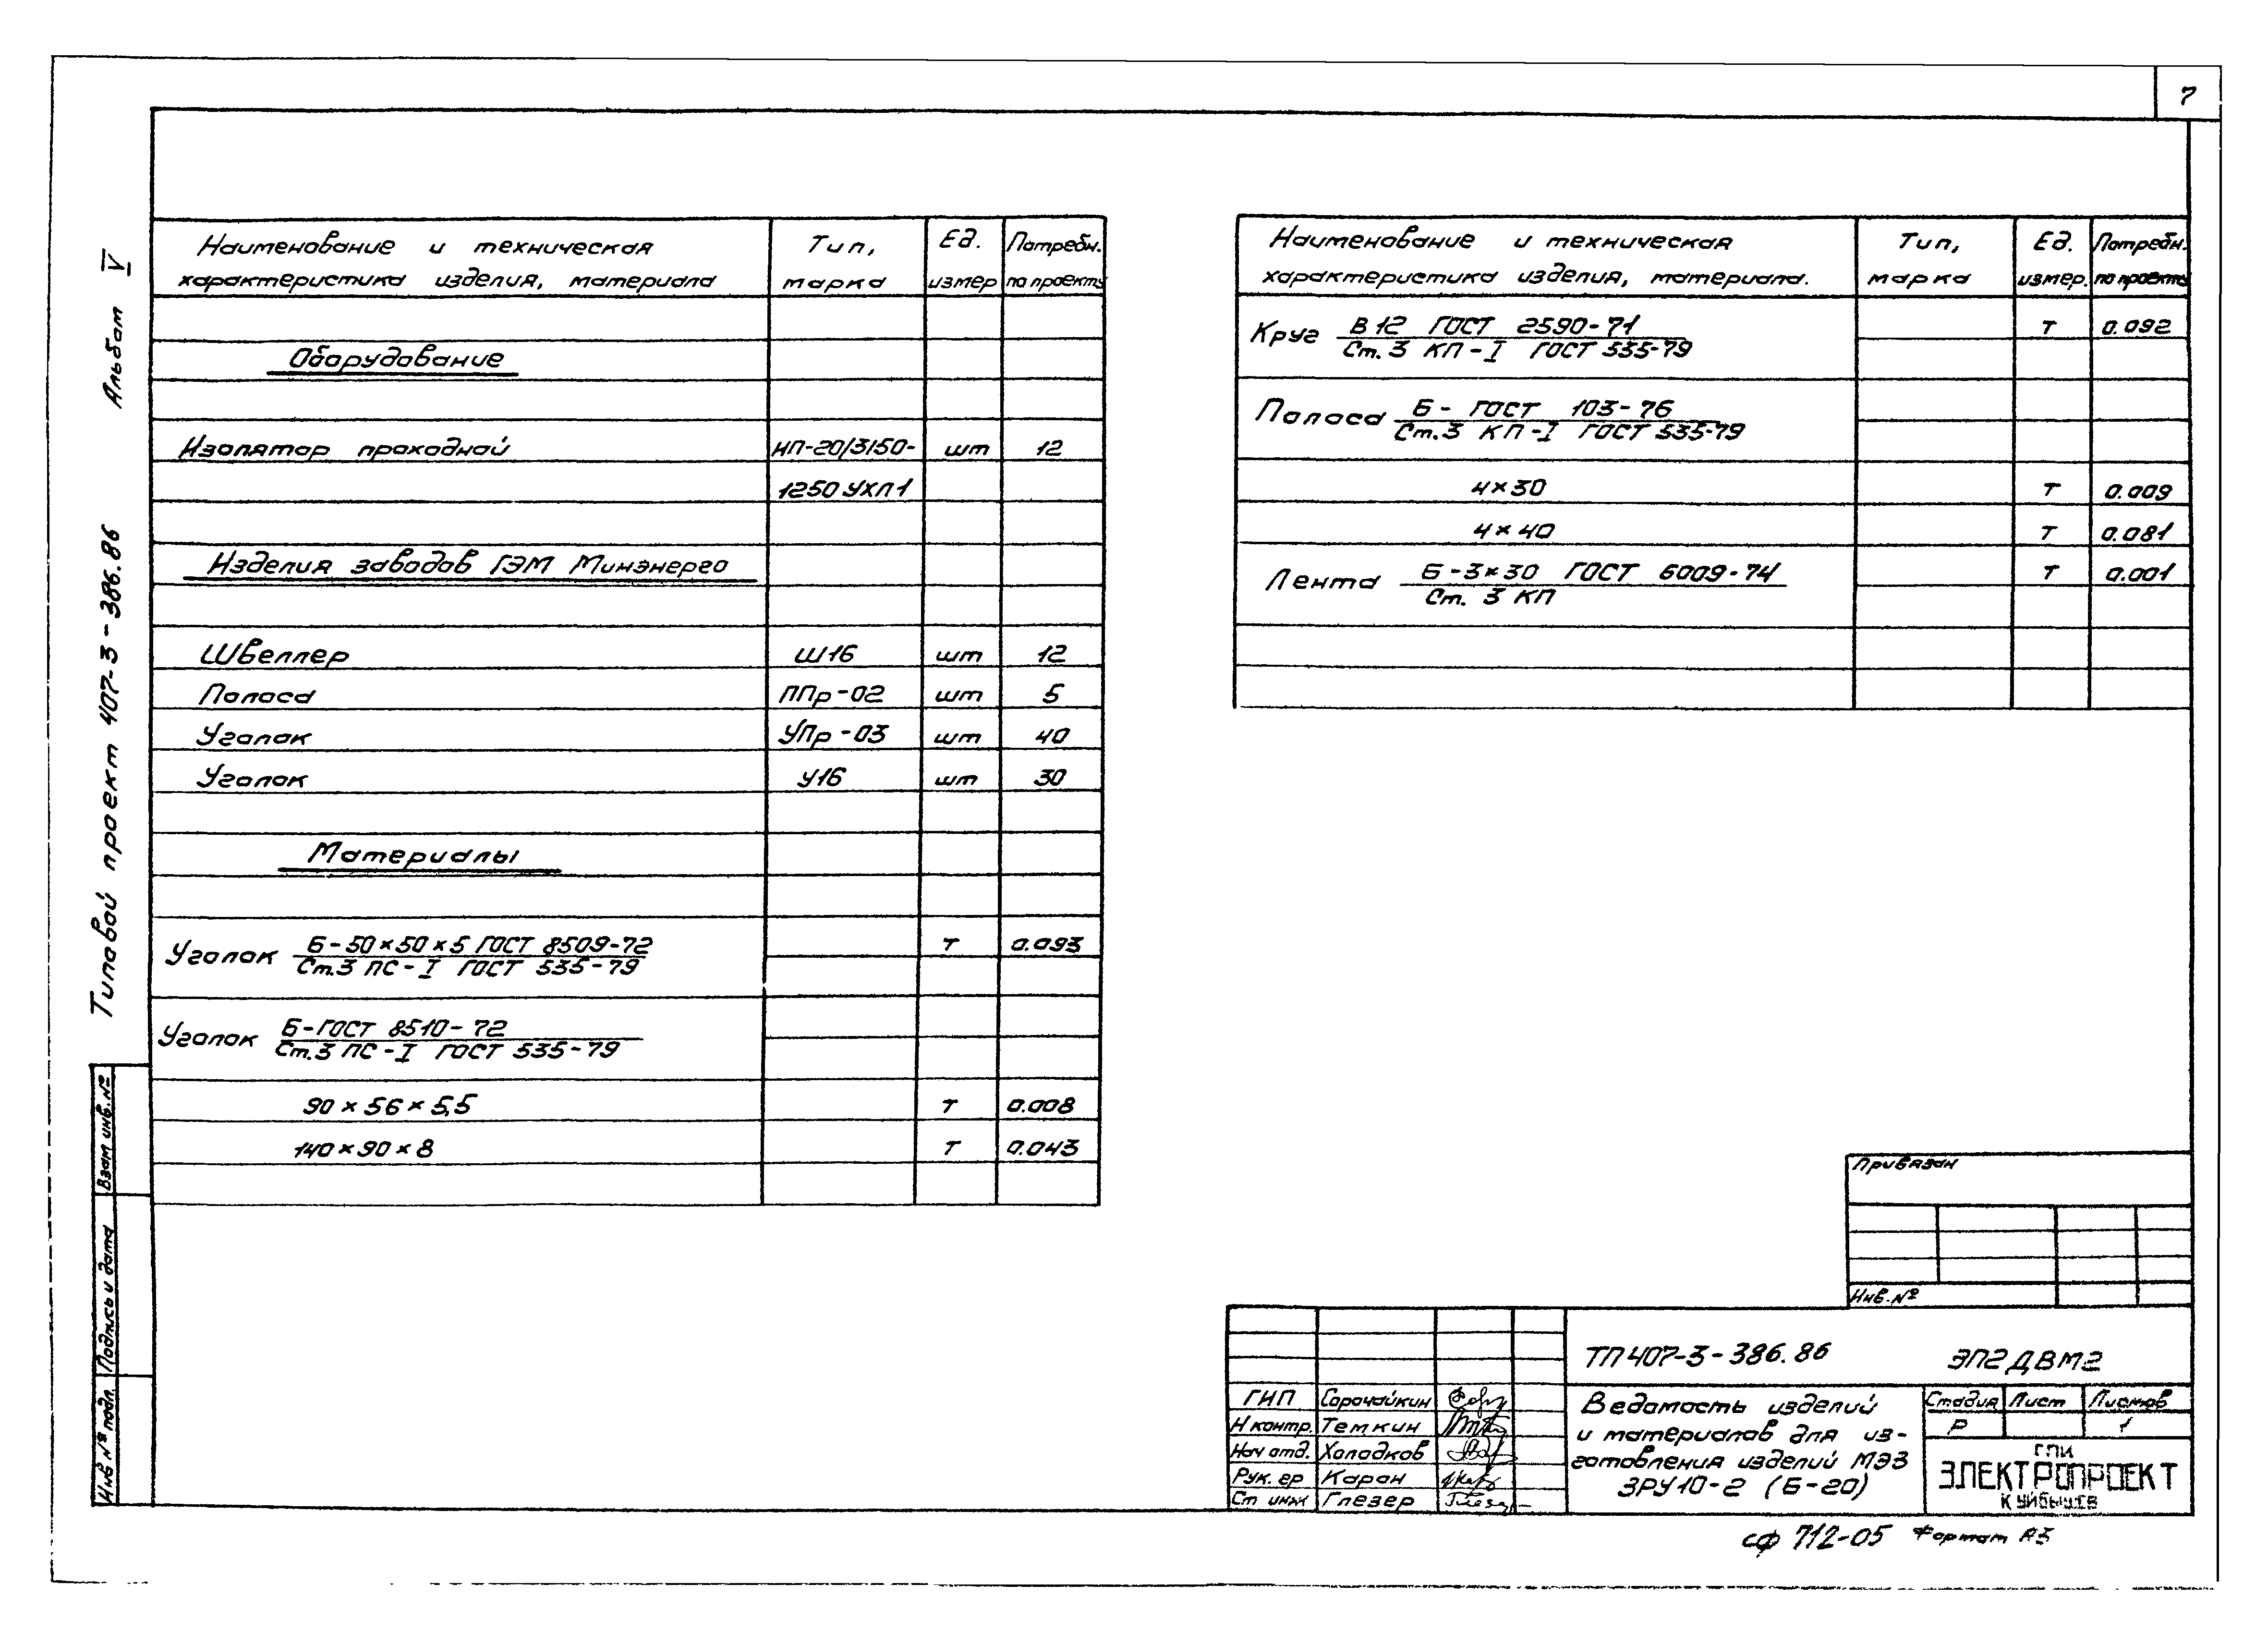 7
Альбом V
Типовой проект 407-3-386.86
Взам инв.№
Подпись и дата
Инв № подл.
Наименование и техническая характеристика изделия, материала | Тип, марка | Ед. измер | Потребн. по проекту
Оборудование
Изолятор проходной ИП-20/3150- шт 12
1250 УХЛ1
Изделия заводов ГЭМ Минэнерго
Швеллер Ш16 шт 12
Полоса ППр-02 шт 5
Уголок УПр-03 шт 40
Уголок У16 шт 30
Материалы
Уголок Б-50×50×5 ГОСТ 8509-72 т 0.093
Ст.3 ПС-I ГОСТ 535-79
Уголок Б-ГОСТ 8510-72
Ст.3 ПС-I ГОСТ 535-79
90×56×5,5 т 0.008
140×90×8 т 0.043
Наименование и техническая характеристика изделия, материала. | Тип, марка | Ед. измер. | Потребн. по проекту
Круг В12 ГОСТ 2590-71 т 0.092
Ст.3 КП-I ГОСТ 535-79
Полоса Б- ГОСТ 103-76
Ст.3 КП-I ГОСТ 535-79
4×30 т 0.009
4×40 т 0.081
Лента Б-3×30 ГОСТ 6009-74 т 0.001
Ст. 3 КП
Привязан
Инв.№
ТП 407-3-386.86 ЭП2ДВМ2
ГИП Сорочайкин
Н контр. Темкин
Нач отд. Холодков
Рук. гр Каран
Ст инж Глезер
Ведомость изделий
и материалов для из-
готовления изделий МЭЗ
ЗРУ10-2 (Б-20)
Стадия Лист Листов
Р 1
ГПИ
ЭЛЕКТРОПРОЕКТ
КУЙБЫШЕВ
сф 712-05 Формат А3